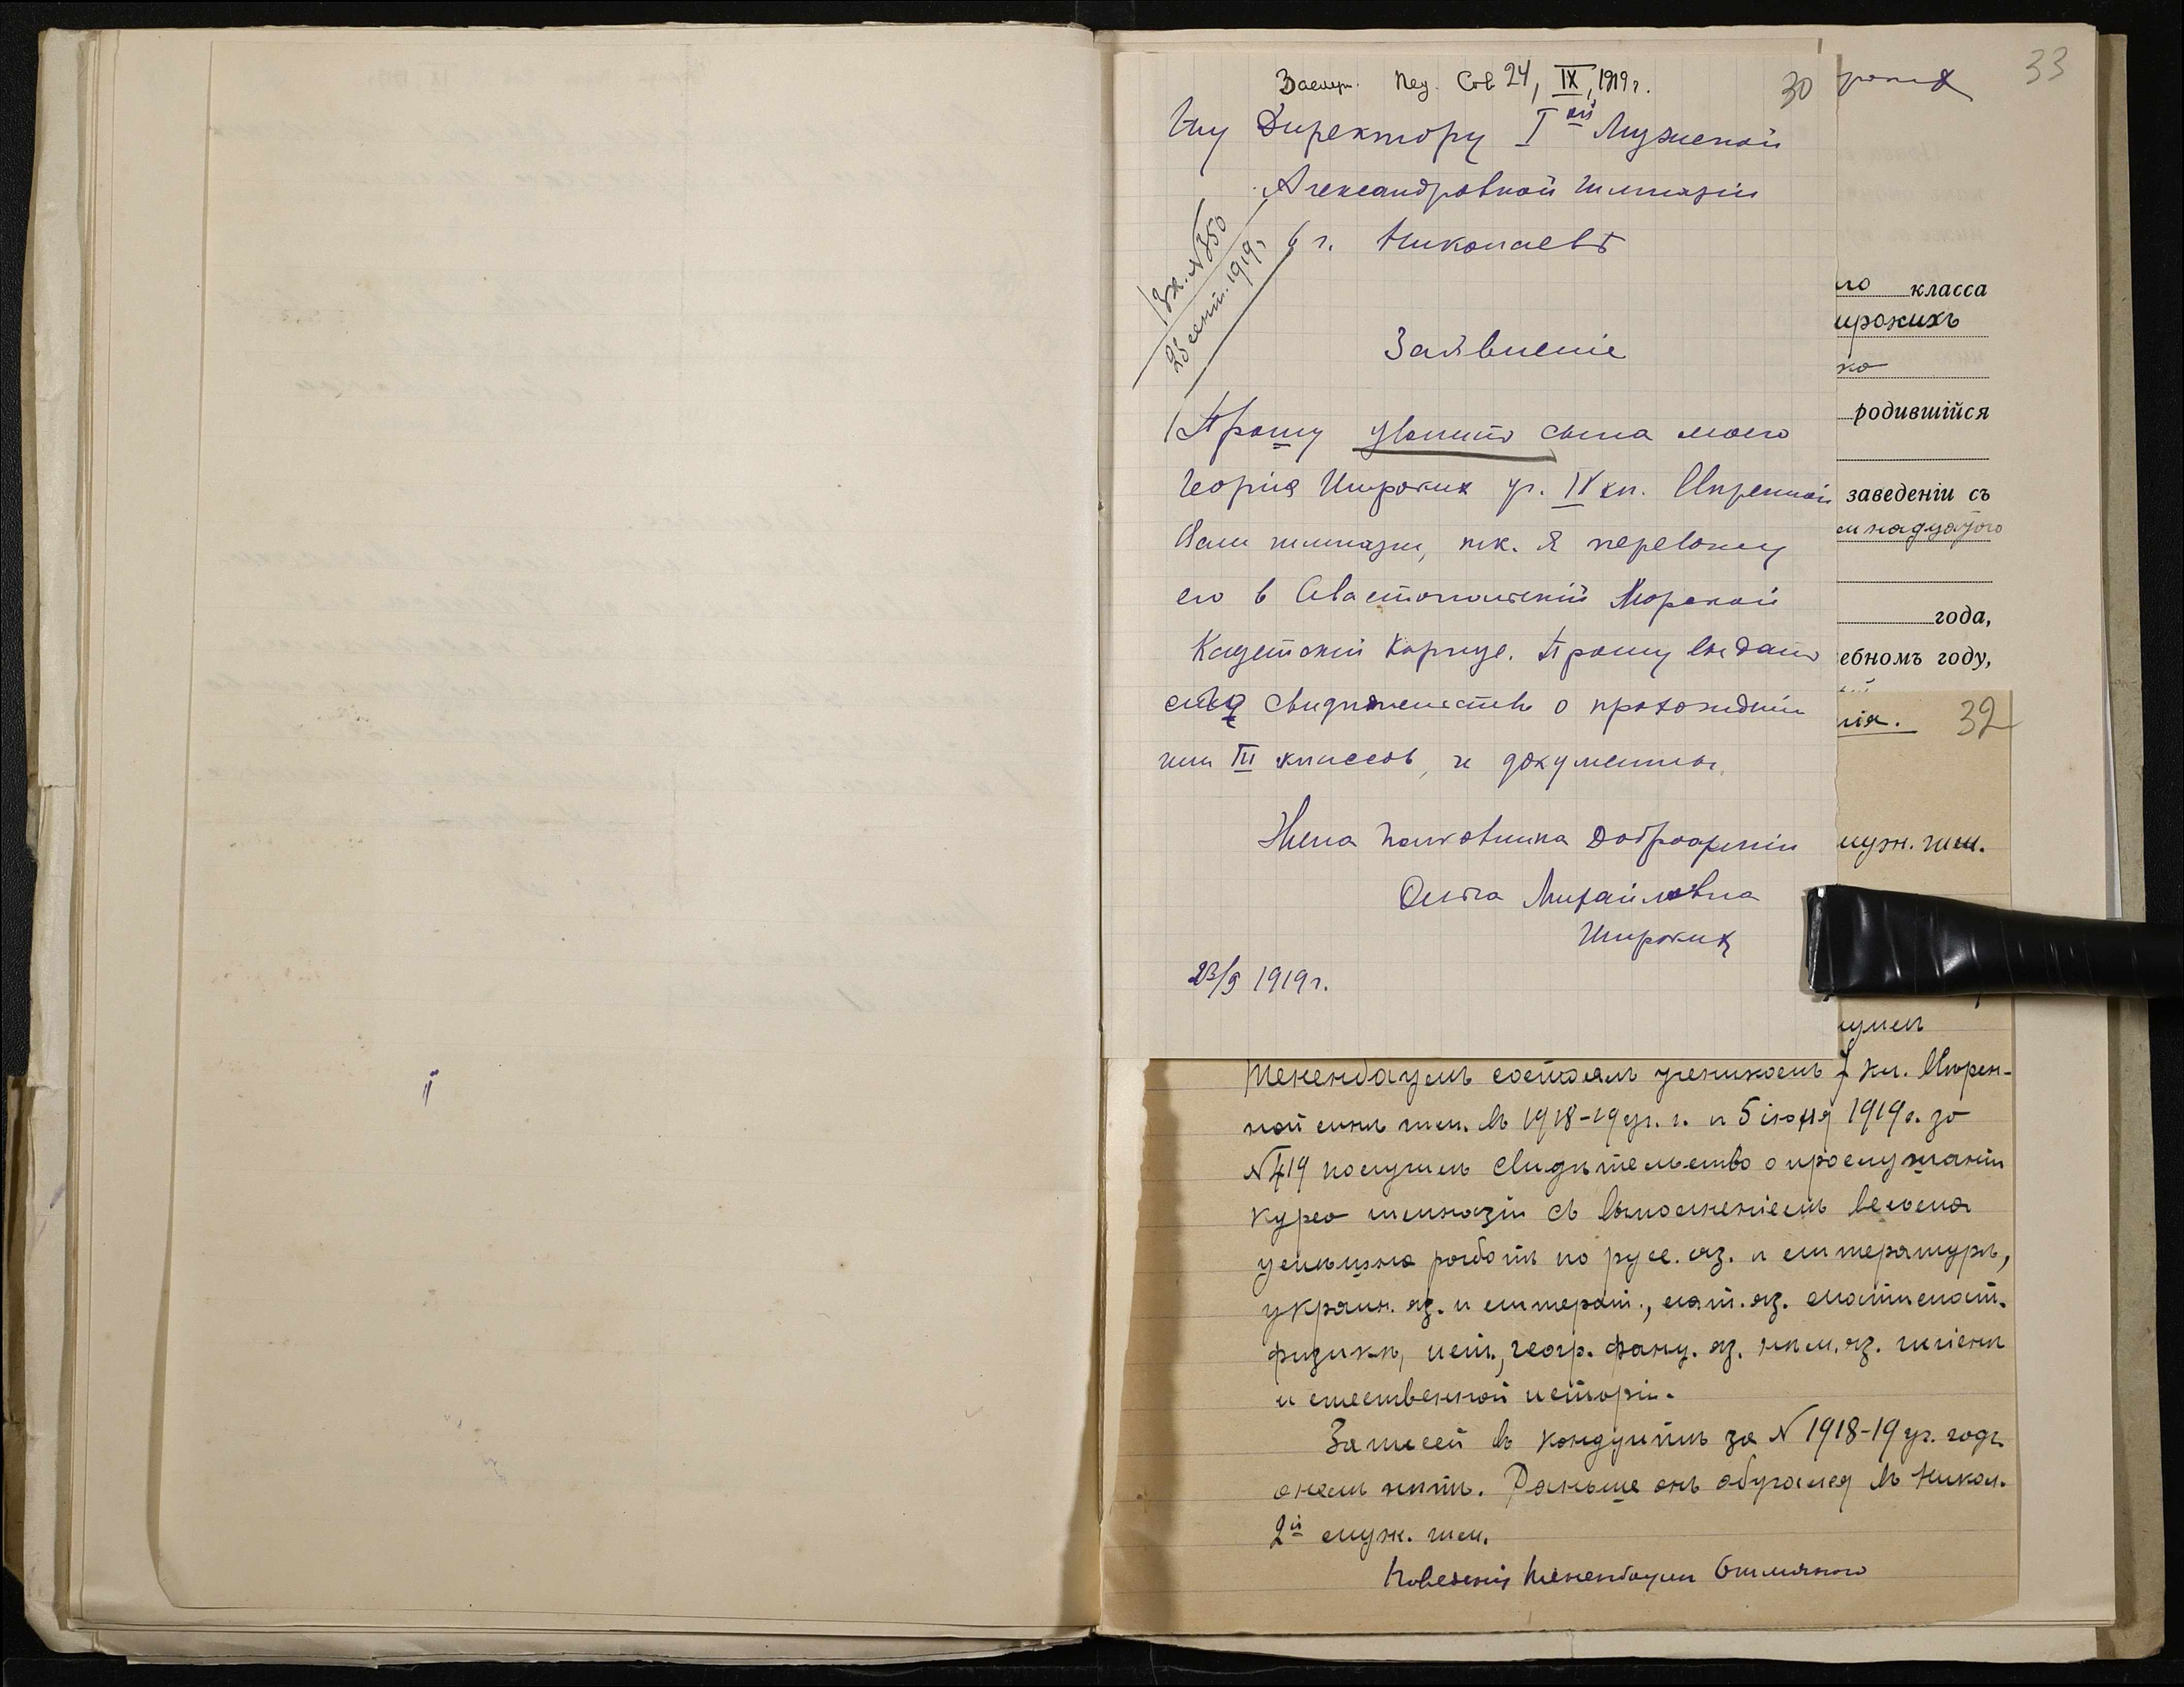 Заслуш. Пед. Сов. 24, IX, 1919 г.
30
33
Гну Директору I ой Мужской
Александровской гимназии
в г. Николаевѣ
Вх. №350
23 сент. 1919 г.
Заявленіе
Прошу уволить сына моего
Георгія Широких уч. IV кл. Ввѣренной
Вам гимназіи, т.к. я перевожу
его в Севастопольскій Морской
Кадетскій Корпус. Прошу выдать
ему свидѣтельство о прохожденіи
им III классов, и документы.
Жена полковника Доброарміи
Ольга Михайловна
Широких
23/9 1919 г.
класса
ирокихъ
родившійся
заведеніи съ
надцатого
года,
ебномъ году,
нія. 32
мужн. гим.
Тененбаумъ состоялъ ученикомъ кл. Ввѣрен-
ной мнѣ гим. въ 1918-19 уч. г. и 5 іюня 1919 г. за
№419 получилъ свидѣтельство о прослушаніи
курса гимназіи съ выполненіемъ весьма
успѣшно работъ по русс. яз. и литературѣ,
украин. яз. и литерат., лат. яз. математ.
физикѣ, ист., геогр. франц. яз. нѣм. яз. гигіенѣ
и естественной исторіи.
Записей въ кондуитѣ за 1918-19 уч. годъ
о нем нѣтъ. Раньше онъ обучался въ Никол.
2й муж. гим.
Поведенія Тененбаум отличного